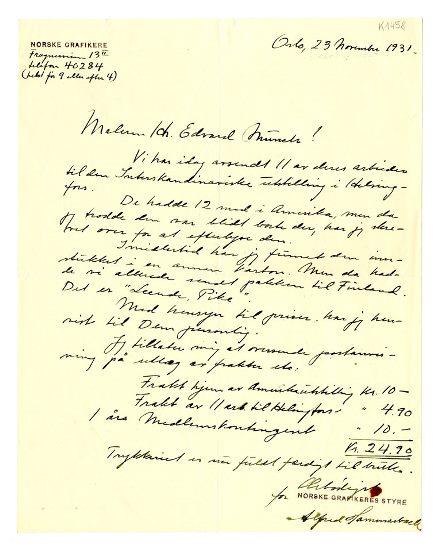 K1458
NORSKE GRAFIKERE
Oslo, 23 November 1931.
telefon 40284
(helst før 9 eller efter 4)
Malern Hr. Edvard Munch!
Vi har idag avsendt 11 av deres arbeider
til den Interskandinaviske utstilling i Helsing-
fors.
De hadde 12 med i Amerika, men da
jeg trodde den var blidt borte der, har jeg skre-
vet over for at efterlyse den.
Imidlertid har jeg funnet den inn-
stukket i en annen karton. Men da had-
de vi allerede sendt pakken til Finland.
Det er "Leende Pike".
Med hensyn til priser har jeg hen-
vist til Dem personlig.
Jeg tillater mig at oversende postanvis-
ning på utlæg av frakter etc.
Frakt hjem av Amerikautstilling Kr. 10 -
Frakt av 11 arb. til Helsingfors " 4.90
1 års Medlemskontingent " 10.-
Kr. 24.90
Trykkeriet er nu fuldt færdigt til bruk.
Ærbødigst
for NORSKE GRAFIKERES STYRE
Alfred